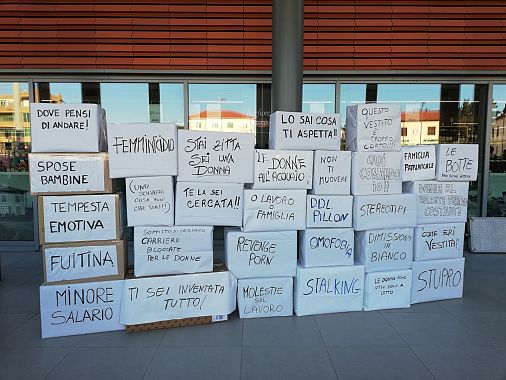 DOVE PENSI
DI ANDARE!
FEMMINICIDIO
STAI ZITTA
SEI UNA
DONNA
LO SAI COSA
TI ASPETTA!!
QUESTO
VESTITO È
TROPPO
CORTO!!
SPOSE
BAMBINE
UNO
SCHIAFFO
CHE SARÀ!!!
TE LA SEI
CERCATA!!
LE DONNE
ALL'ACQUAIO
NON TI
MUOVERE
QUI
COMANDO
IO!!
FAMIGLIA
PATRIARCALE
LE
BOTTE
TEMPESTA
EMOTIVA
SOFFITTO DI CRISTALLO
CARRIERE
BLOCCATE
PER LE DONNE
O LAVORO O
FAMIGLIA
DDL
PILLON
STEREOTIPI
FUITINA
REVENGE
PORN
OMOFOBIA
DIMISSIONI
IN
BIANCO
COME ERI
VESTITA?
MINORE
SALARIO
TI SEI INVENTATA
TUTTO!
MOLESTIE SUL
LAVORO
STALKING
LE DONNE SONO
UTILI SOLO A
LETTO
STUPRO